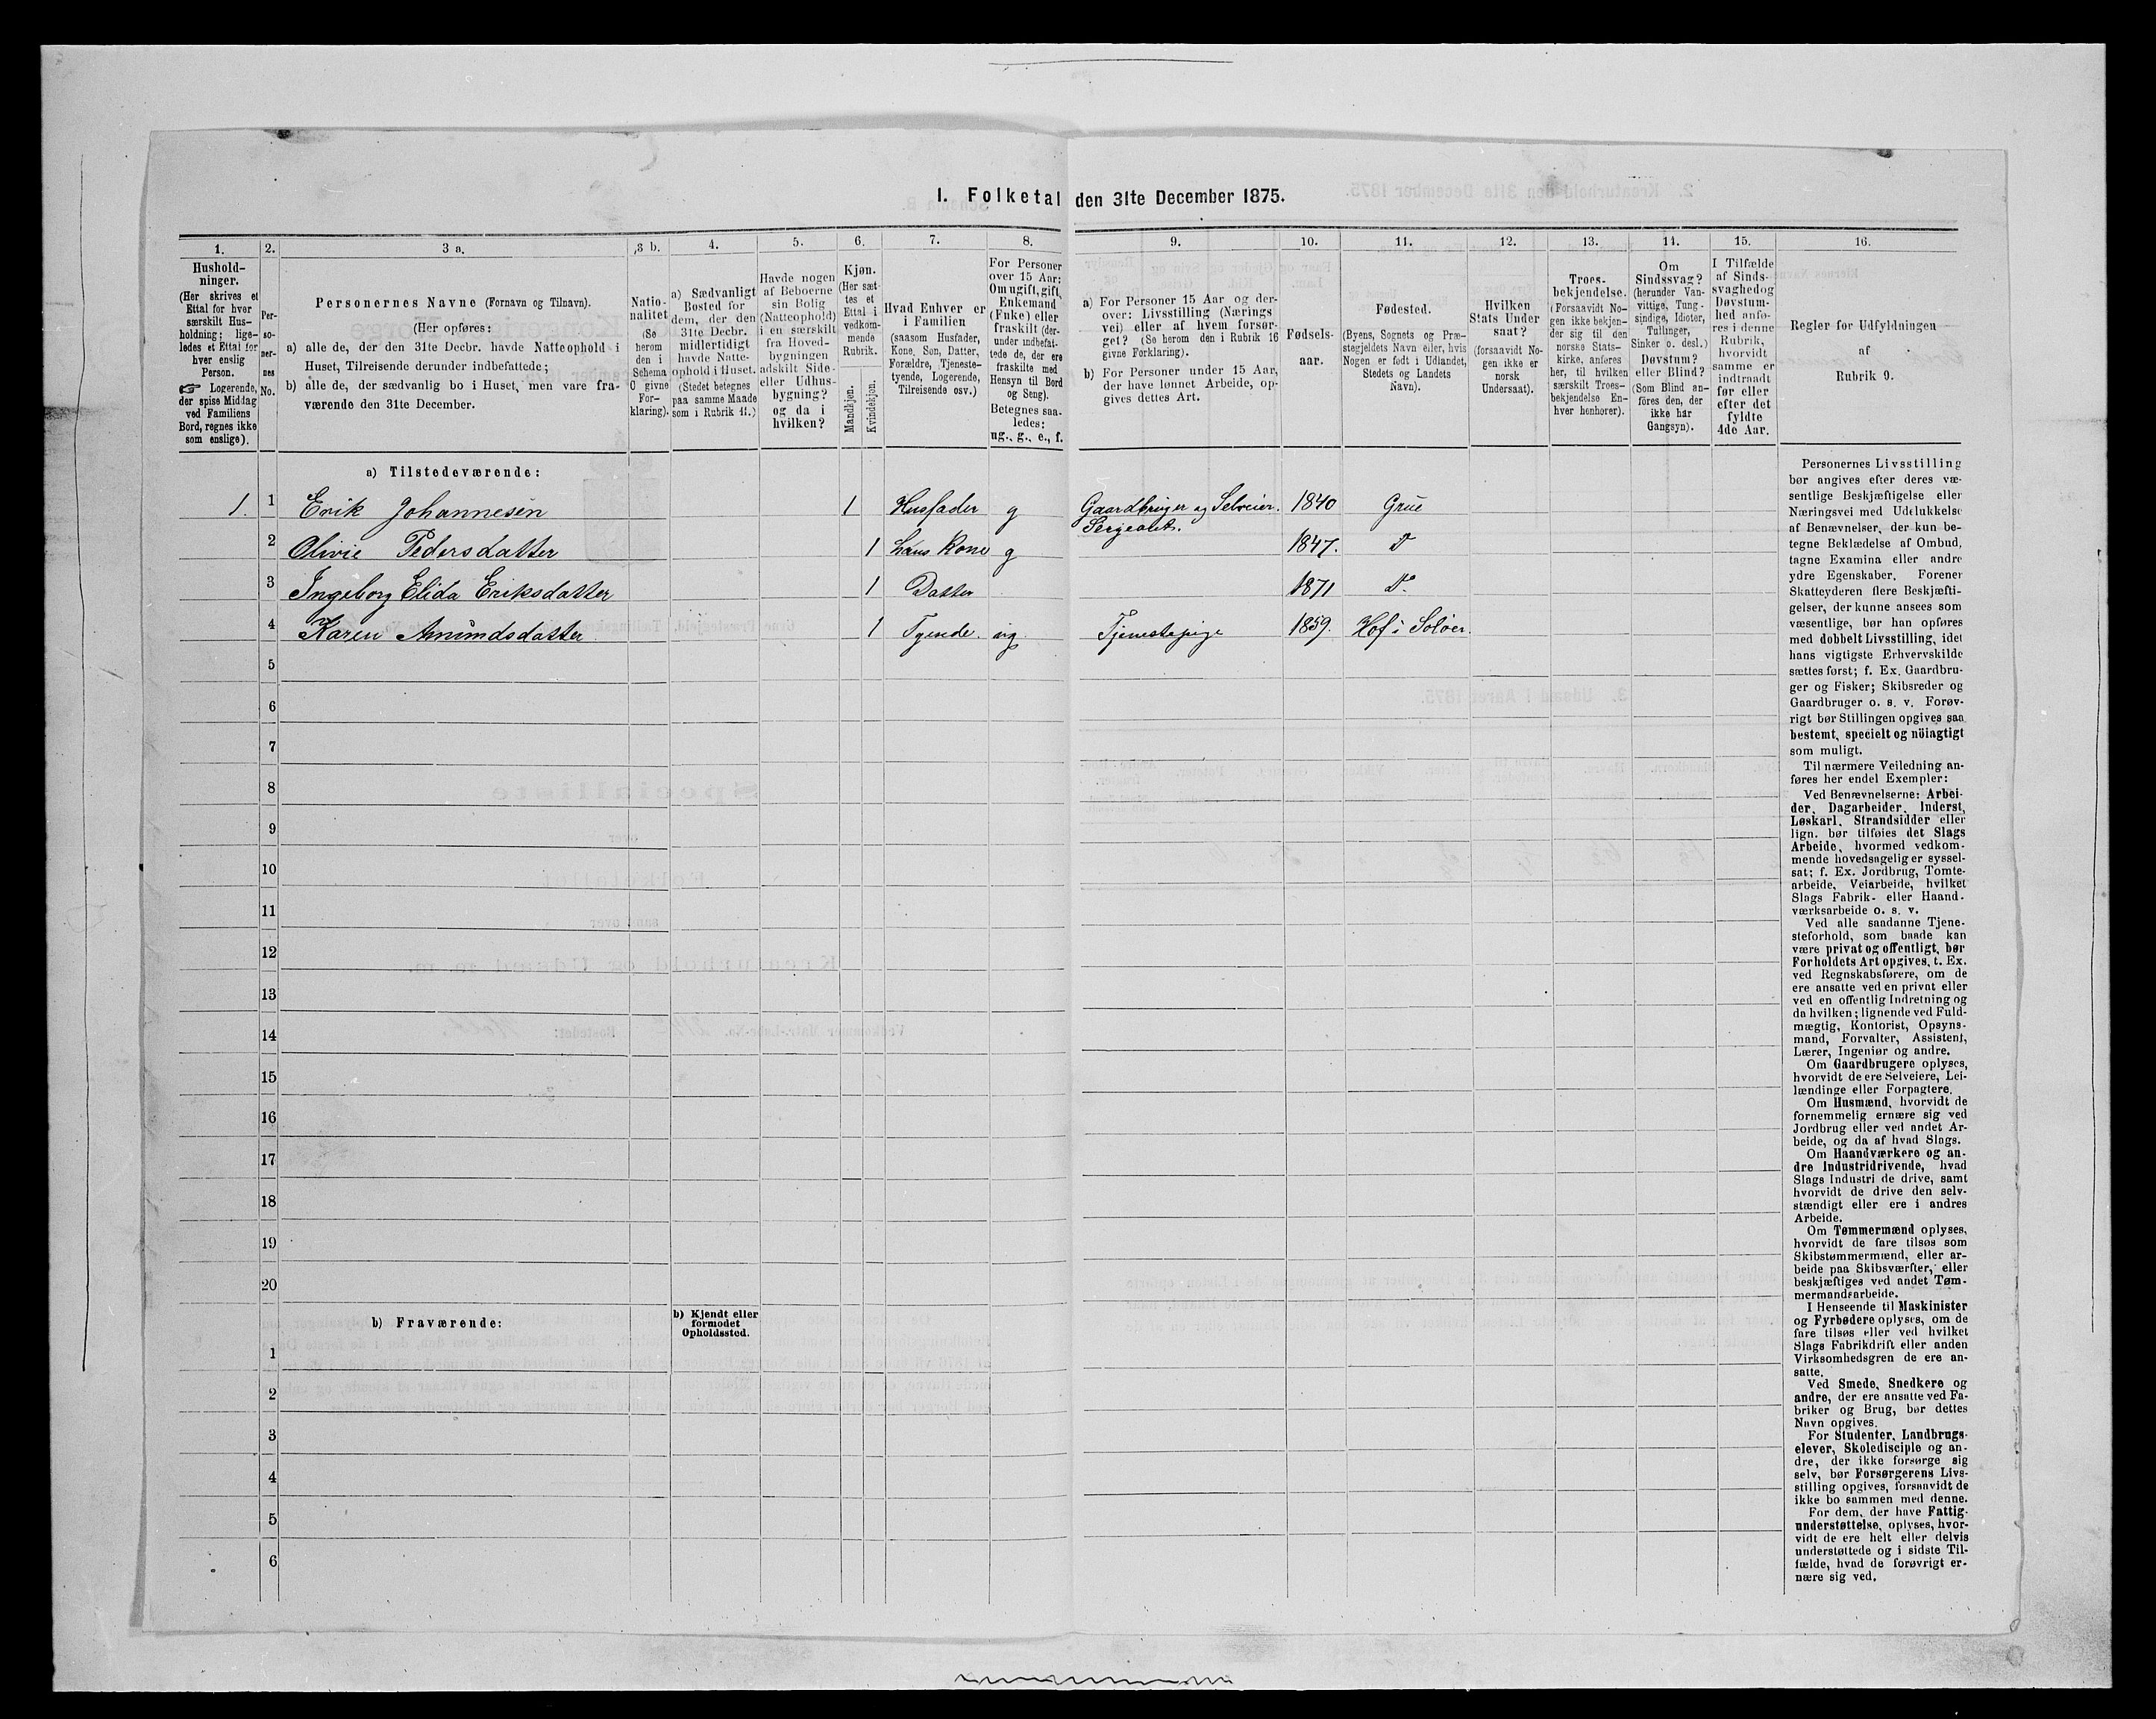 I. Folketal den 31te December 1875.
1.
Hushold-
ninger.
(Her skrives et
Ettal for hver
særskilt Hus-
holdning; lige-
ledes et Ettal for
hver enslig
Person.
☞ Logerende,
der spise Middag
ved Familiens
Bord, regnes ikke
som enslige).
2.
Per-
so-
ner-
nes
No.
3 a.
Personernes Navne (Fornavn og Tilnavn).
(Her opføres:
a) alle de, der den 31te Decbr. havde Natteophold i
Huset, Tilreisende derunder indbefattede;
b) alle de, der sædvanlig bo i Huset, men vare fra-
værende den 31te December.
3 b.
Natio-
nalitet
(Se
herom
den i
Schema
C givne
For-
klaring).
4.
a) Sædvanligt
Bosted for
dem, der den
31te Decbr.
midlertidigt
havde Natte-
ophold i Huset.
(Stedet betegnes
paa samme Maade
som i Rubrik 11.)
5.
Havde nogen
af Beboerne
sin Bolig
(Natteophold)
i en særskilt
fra Hoved-
bygningen
adskilt Side-
eller Udhus-
bygning?
og da i
hvilken?
6.
Kjøn.
(Her sæt-
tes et
Ettal i
vedkom-
mende
Rubrik.
Mandkjøn.
Kvindekjøn.
7.
Hvad Enhver er
i Familien
(saasom Husfader,
Kone, Søn, Datter,
Forældre, Tjeneste-
tyende, Logerende,
Tilreisende osv.)
8.
For Personer
over 15 Aar:
Om ugift, gift,
Enkemand
(Enke) eller
fraskilt (der-
under indbefat-
tede de, der ere
fraskilte med
Hensyn til Bord
og Seng).
Betegnes saa-
ledes:
ug., g., e., f.
9.
a) For Personer 15 Aar og der-
over: Livsstilling (Nærings
vei) eller af hvem forsør-
get? (Se herom den i Rubrik 16
givne Forklaring).
b) For Personer under 15 Aar,
der have lønnet Arbeide, op-
gives dettes Art.
10.
Fødsels-
aar.
11.
Fødested.
(Byens, Sognets og Præ-
stegjeldets Navn eller, hvis
Nogen er født i Udlandet,
Stedets og Landets
Navn).
12.
Hvilken
Stats Under
saat?
(forsaavidt No-
gen ikke er
norsk
Undersaat).
13.
Troes-
bekjendelse.
(Forsaavidt No-
gen ikke bekjen-
der sig til den
norske Stats-
kirke, anføres
her, til hvilken
særskilt Troes-
bekjendelse En-
hver henhører).
14.
Om
Sindssvag?
(herunder Van-
vittige, Tung-
sindige, Idioter,
Tullinger,
Sinker o. desl.)
Døvstum?
eller Blind?
(Som Blind an-
føres den, der
ikke har
Gangsyn).
15.
I Tilfælde
af Sinds-
svaghed og
Døvstum-
hed anfø-
res i denne
Rubrik,
hvorvidt
samme er
indtraadt
før eller
efter det
fyldte
4de Aar.
16.
Regler for Udfyldningen
af
Rubrik 9.
a) Tilstedeværende:
1. 1 Erik Johannesen 1 Husfader g Gaardbruger og Selveier. 1840 Grue
Sergeant.
2 Olivie Pedersdatter 1 hans Kone g 1847. D
3 Ingeborg Elida Eriksdatter 1 Datter 1871 D.
4 Karen Amundsdatter 1 Tyende. ug Tjenestepige 1859. Hof i Soløer.
5
6
7
8
9
10
11
12
13
14
15
16
17
18
19
20
b) Fraværende:
b) Kjendt eller
formodet
Opholdssted.
1
2
3
4
5
6
Personernes Livsstilling
bør angives efter deres væ-
sentlige Beskjæftigelse eller
Næringsvei med Udelukkelse
af Benævnelser, der kun be-
tegne Beklædelse af Ombud,
tagne Examina eller andre
ydre Egenskaber. Forener
Skatteyderen flere Beskjæfti-
gelser, der kunne ansees som
væsentlige, bør han opføres
med dobbelt Livsstilling, idet
hans vigtigste Erhvervskilde
sættes først; f. Ex. Gaardbru-
ger og Fisker; Skibsreder og
Gaardbruger o. s. v. Forøv-
rigt bør Stillingen opgives saa
bestemt, specielt og nöiagtigt
som muligt.
Til nærmere Veiledning an-
føres her endel Exempler:
Ved Benævnelserne: Arbei-
der, Dagarbeider, Inderst,
Løskarl, Strandsidder eller
lign. bør tilføies det Slags
Arbeide, hvormed vedkom-
mende hovedsagelig er syssel-
sat; f. Ex. Jordbrug, Tomte-
arbeide, Veiarbeide, hvilket
Slags Fabrik- eller Haand-
værksarbeide o. s. v.
Ved alle saadanne Tjene-
steforhold, som baade kan
være privat og offentligt, bør
Forholdets Art opgives, t. Ex.
ved Regnskabsførere, om de
ere ansatte ved en privat eller
ved en offentlig Indretning og
da hvilken; lignende ved Fuld-
mægtig, Kontorist, Opsyns-
mand, Forvalter, Assistent,
Lærer, Ingeniør og andre.
Om Gaardbrugere oplyses,
hvorvidt de ere Selveiere, Lei-
lændinge eller Forpagtere.
Om Husmænd, hvorvidt de
fornemmelig ernære sig ved
Jordbrug eller ved andet Ar-
beide, og da af hvad Slags.
Om Haandværkere og an-
dre Industridrivende, hvad
Slags Industri de drive, samt
hvorvidt de drive den selv-
stændigt eller ere i andres
Arbeide.
Om Tømmermænd oplyses,
hvorvidt de fare tilsøs som
Skibstømmermænd, eller ar-
beide paa Skibsværfter, eller
beskjæftiges ved andet Tøm-
mermandsarbeide.
I Henseende til Maskinister
og Fyrbødere oplyses, om de
fare tilsøs eller ved hvilket
Slags Fabrikdrift eller anden
Virksomhedsgren de ere an-
satte.
Ved Smede, Snedkere og
andre, der ere ansatte ved Fa-
briker og Brug, bør dettes
Navn opgives.
For Studenter, Landbrugs-
elever, Skoledisciple og an-
dre, der ikke forsørge sig
selv, bør Forsørgerens Livs-
stilling opgives, forsaavidt de
ikke bo sammen med denne.
For dem, der have Fattig-
understøttelse, oplyses, hvor-
vidt de ere helt eller delvis
understøttede og i sidste Til-
fælde, hvad de forøvrigt er-
nære sig ved.